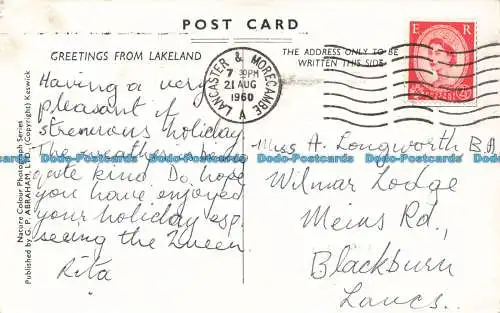 POST CARD
GREETINGS FROM LAKELAND
THE ADDRESS ONLY TO BE
WRITTEN THIS SIDE
E R
LANCASTER & MORECAMBE
7 30PM
21 AUG
1960
A
Having a very
pleasant if
strenuous holiday.
The weather is being
quite kind. Do hope
you have enjoyed
your holiday esp.
seeing the Queen
Rita
Miss A. Longworth B.A.
Wilmar Lodge
Meins Rd,
Blackburn
Lancs.
Nature Colour Photograph Series
Published by G. P. ABRAHAM, LTD. (Copyright) Keswick
Dodo-Postcards Dodo-Postcards Dodo-Postcards Dodo-Postcards Dodo-Postcards